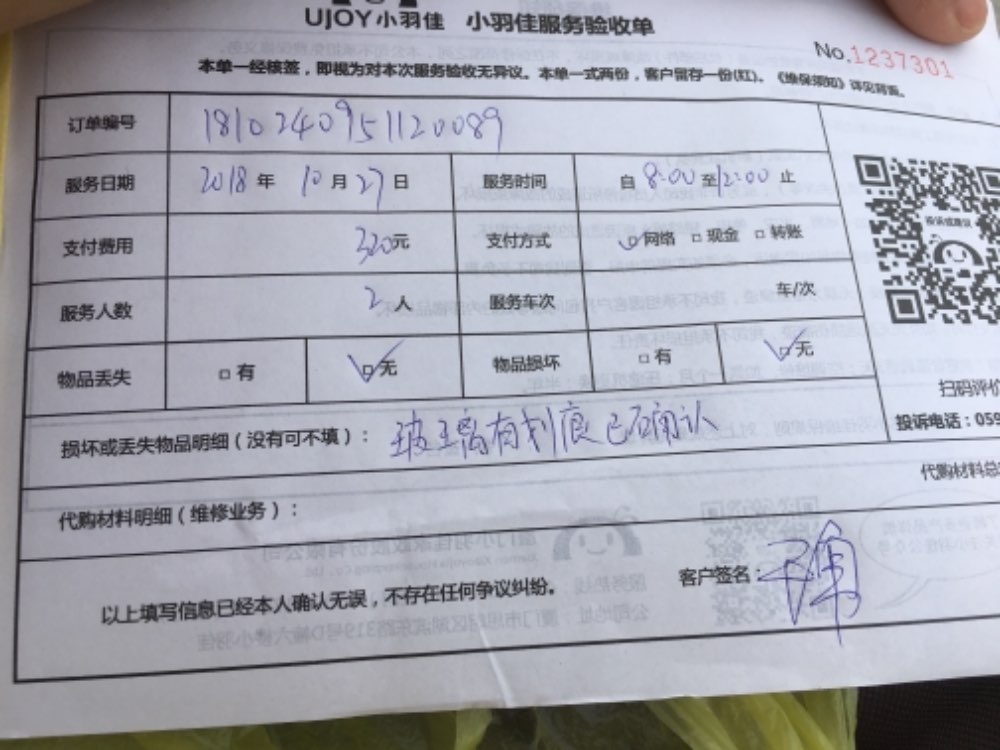 UJOY小羽佳 小羽佳服务验收单
No.1237301
本单一经核签，即视为对本次服务验收无异议。本单一式两份，客户留存一份(红)。《维保须知》详见背面。
订单编号 1810240951120089
服务日期 2018年10月27日 服务时间 自8:00至12:00止
支付费用 320元 支付方式 ☑网络 □现金 □转账
服务人数 2人 服务车次 车/次
物品丢失 □有 ☑无 物品损坏 □有 ☑无
投诉或建议
扫码评价
投诉电话：059
损坏或丢失物品明细（没有可不填）：玻璃有划痕已确认
代购材料总
代购材料明细（维修业务）：
以上填写信息已经本人确认无误，不存在任何争议纠纷。 客户签名：